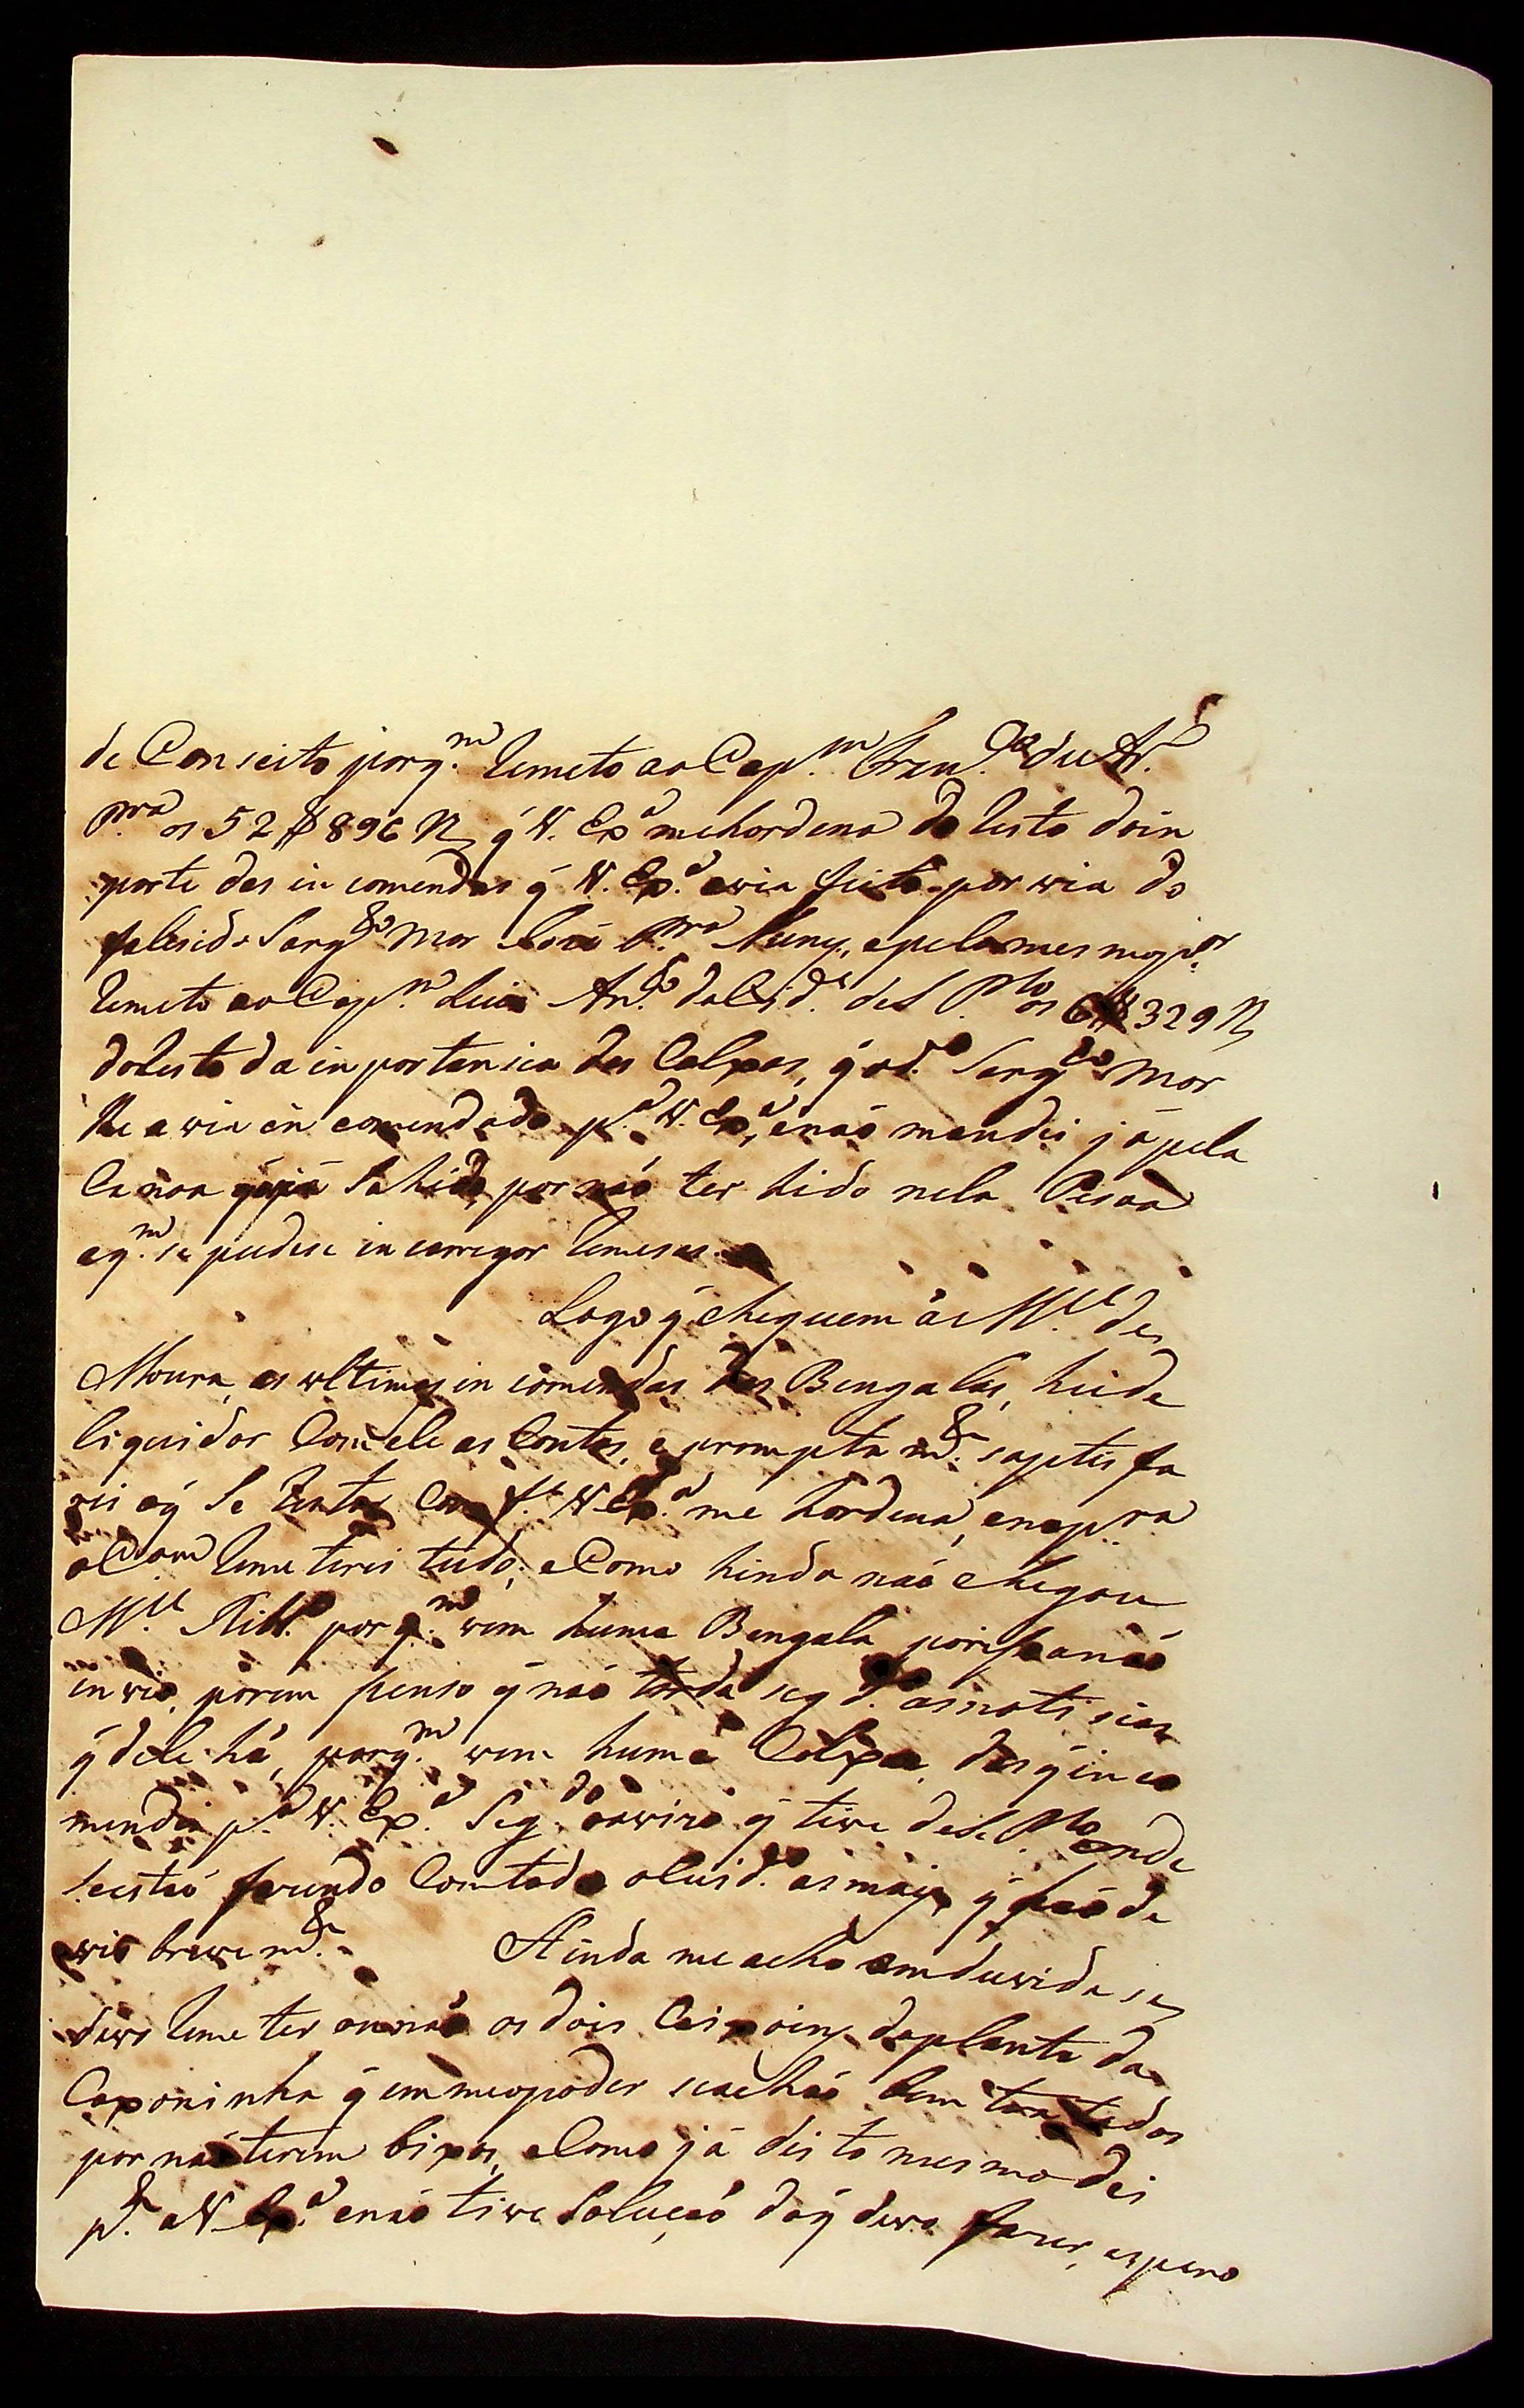 de Conseito porq.m Remeto ao Cap.m
p.ra os 52$896 R.s q̃ V. Ex.a mehordena do Resto doin
porte das in comendas q̃ V. Ex.a avia feito por via do
falesido Sarg.to Mor José P.ra Nunes, epelo mesmo p.or
Remeto ao Cap.m Luis An.to daCid.e de S. P.lo os 6$329 R.s
doResto da in portansia das Calxas, q̃ od.o Sarg.to Mor
lhe avia en comendado p.a V. Ex.a, enaõ mandei já pela
Canoa q̃ já Sahio, por naõ ter hido nela Pesoa
aq.m se pudese in carregar Remesas.
Logo q̃ cheguem às M.el de
Moura, as ultimas in comendas das Bengalas, heide
liquidar Com ele as Contas, e prompta m.te saptisfa
rei oq̃ Se Restar Con f.e V. Ex.a me hordena, enap.ra
oCaz.am Reme terei tudo; eComo hinda naõ chegou
M.el Rib.o por q.m vem huma Bengala porisso anaõ
invio, porem penso q̃ naõ tarda seg.do asnotisias
q̃ dele há, porq.m vem huma Calxa, das q̃ in co
mendei p.a V. Ex.a Seg.do oavizo q̃ tive de S. P.lo onde
seestaõ fazendo Comtodo oluid.o asmais q̃ haõ de
vir breve m.te Ainda me acho em duvida se
devo Reme ter ounaõ os dois Caixoins daplanta da
Caponinha q̃ emmeopoder seachaõ bem tratados
por naõ terem bixos, eComo já disto mesmo dei
p.te a V. Ex.a enaõ tive Soluçaõ doq̃ devo fazer, espero